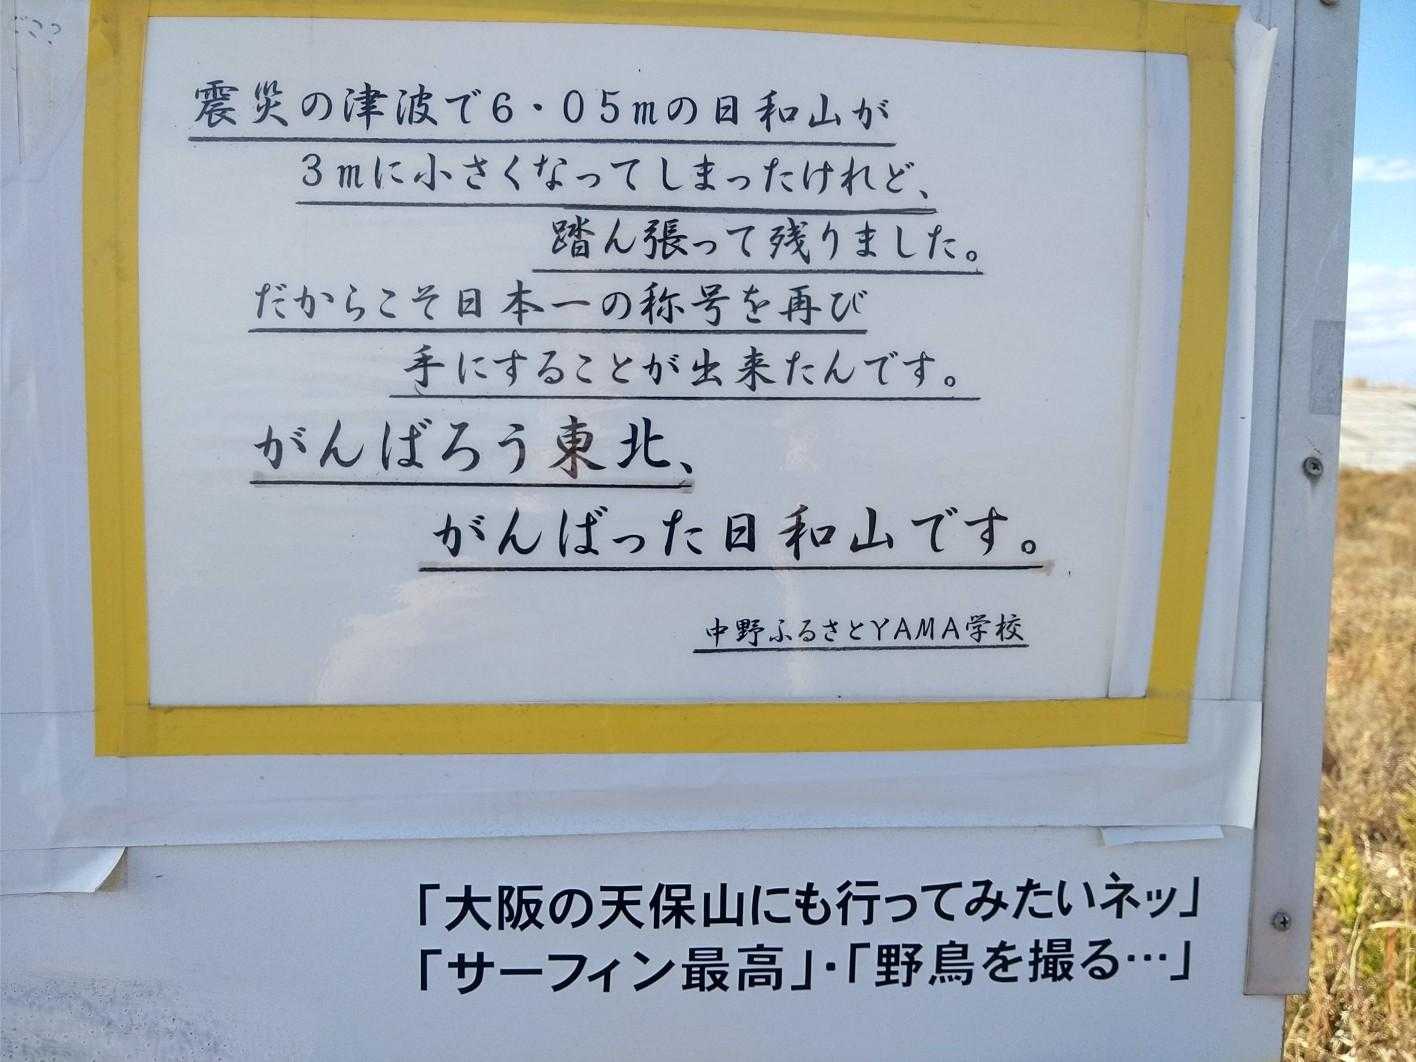 震災の津波で6・05mの日和山が
3mに小さくなってしまったけれど、
踏ん張って残りました。
だからこそ日本一の称号を再び
手にすることが出来たんです。
がんばろう東北、
がんばった日和山です。
中野ふるさとYAMA学校
「大阪の天保山にも行ってみたいネッ」
「サーフィン最高」・「野鳥を撮る…」